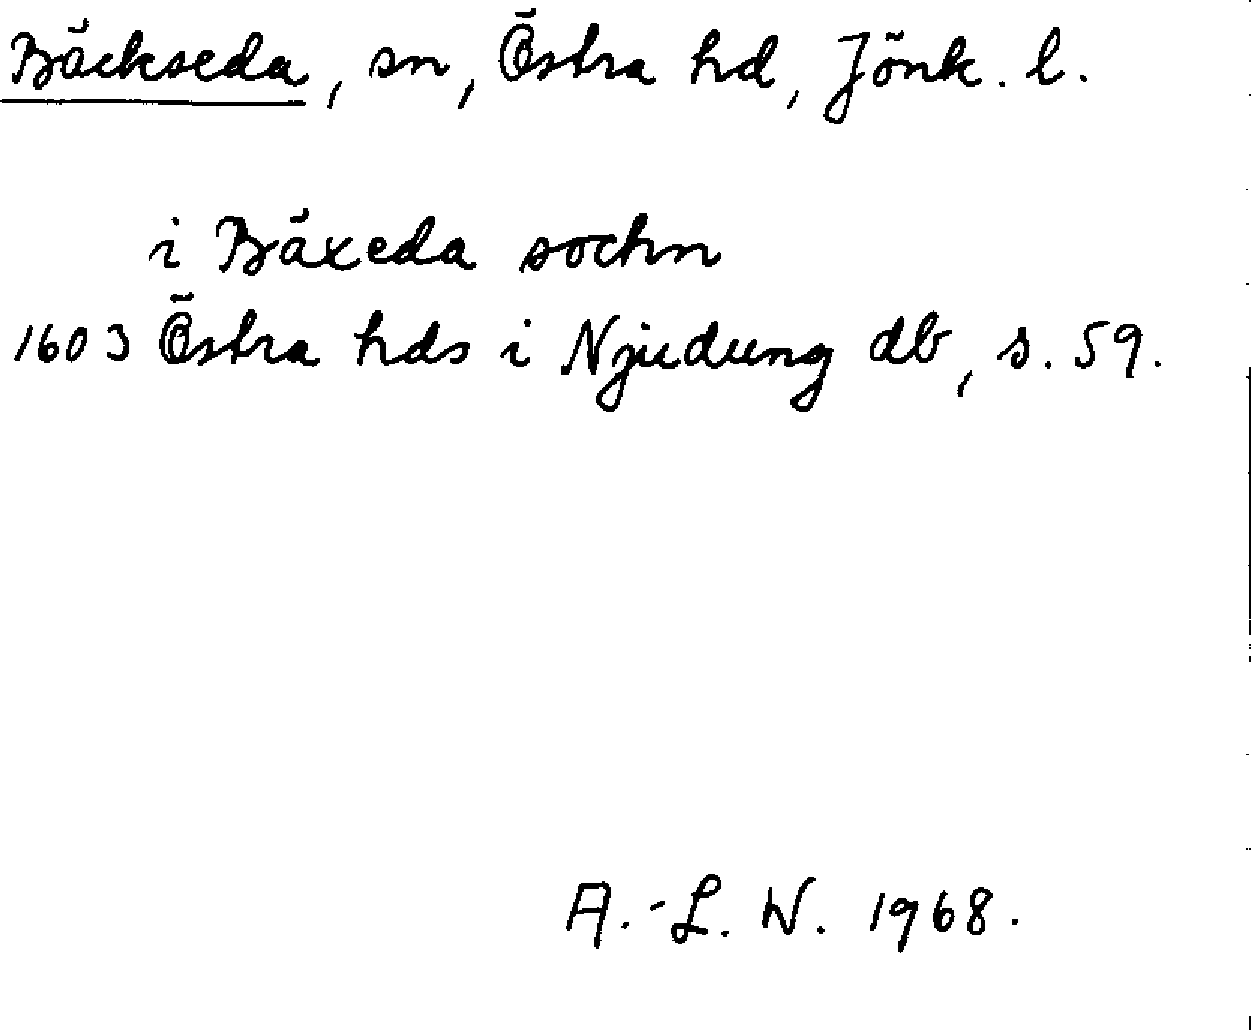 Bäckseda, sn, Östra hd, Jönk. l.
i Bäxeda sochn
1603 Östra hds i Njudung db, s. 59.
A.-L. W. 1968.